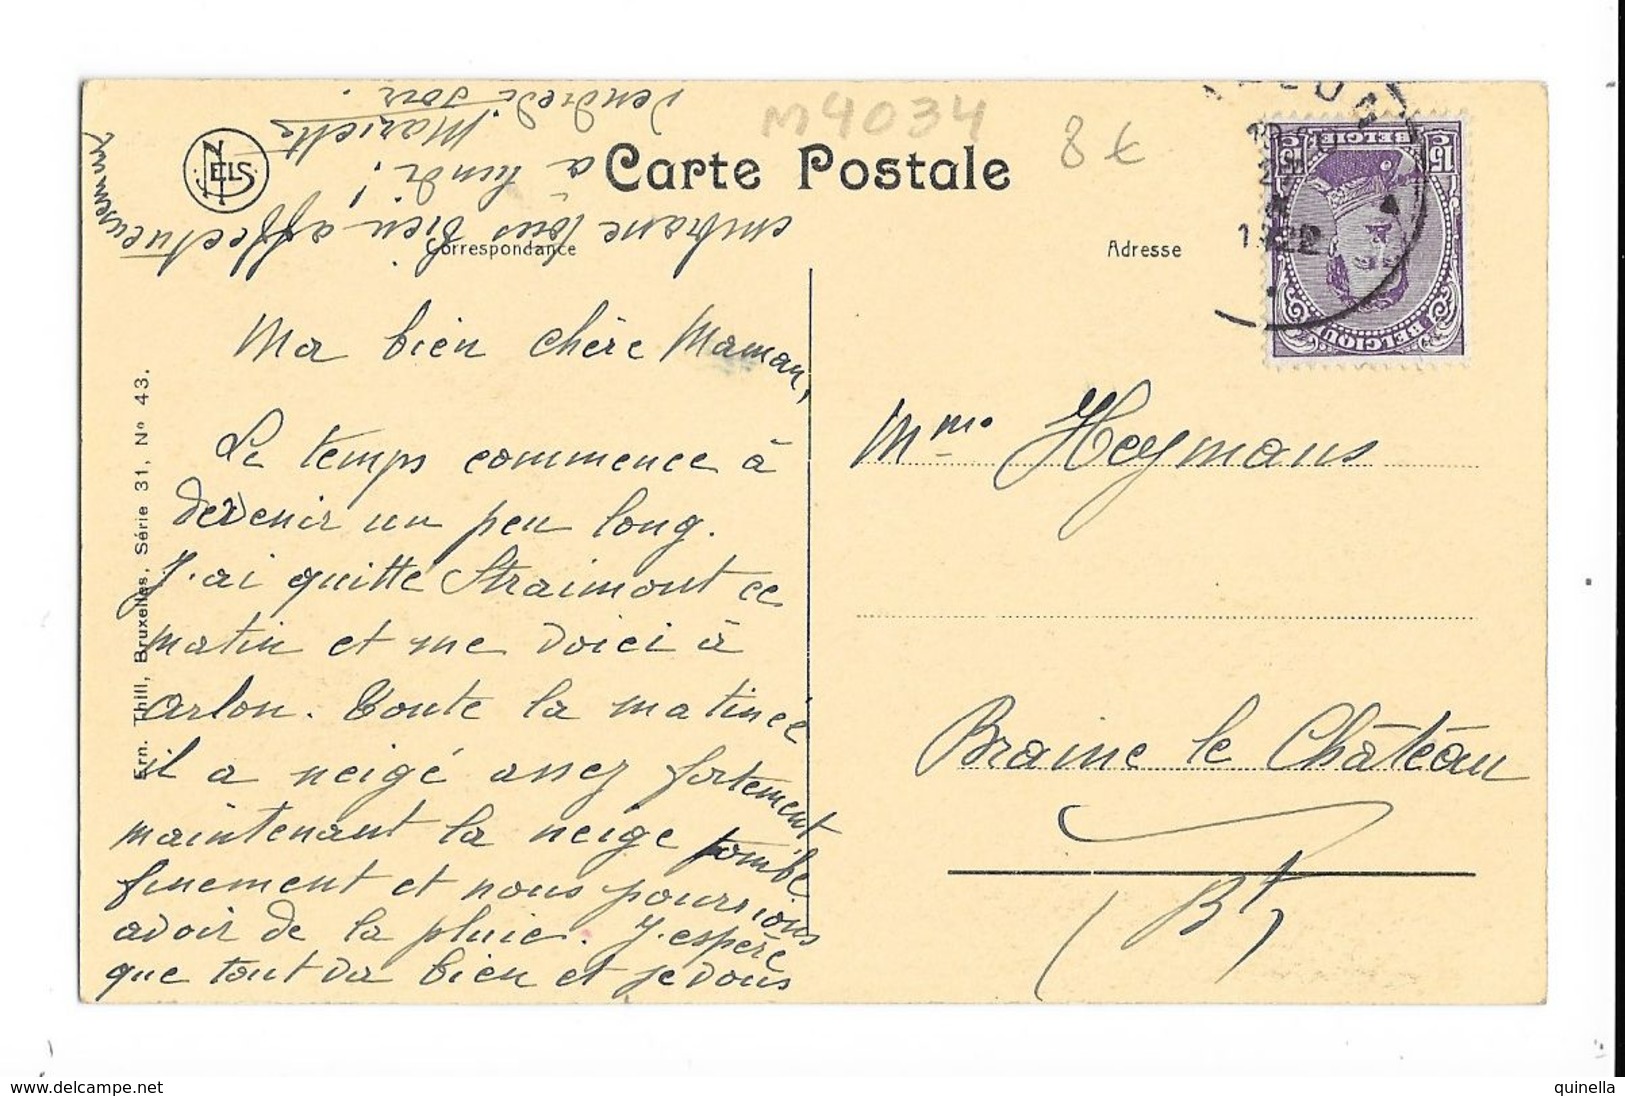 M4034
8 €
NELS
Carte Postale
Correspondance
Adresse
Ma bien chère Maman,
Le temps commence à
devenir un peu long.
J'ai quitté Straimont ce
matin et me voici à
Arlon. Toute la matinée
il a neigé assez fortement
maintenant la neige tombe
finement et nous pourrions
avoir de la pluie. J'espère
que tout va bien et je vous
embrasse tous bien affectueusement
à lundi!
Mariette
Vendredi soir.
Mme Heymans
Braine le Château
(Bt)
Ern. Thill, Bruxelles, Série 31, No 43.
BELGIE
15 15
BELGIQUE
www.delcampe.net
quinella